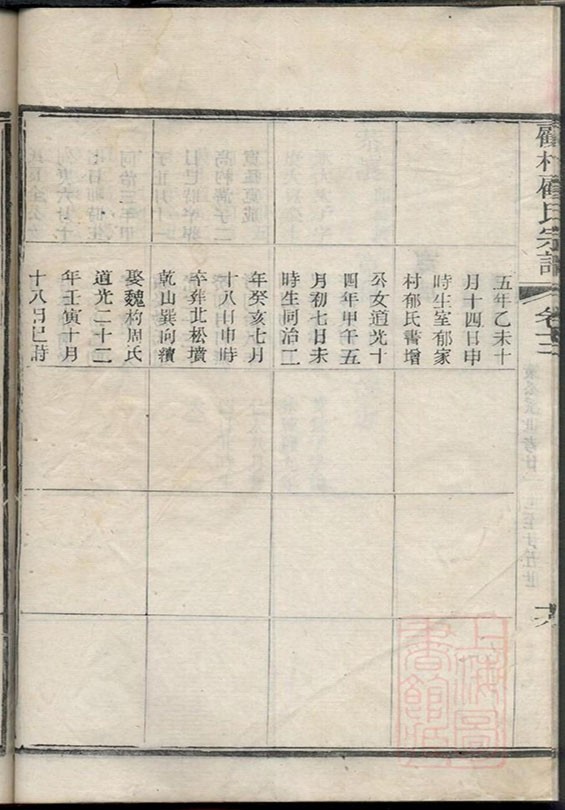 顧村顧氏宗譜
卷三
十六
五年乙未十
月十四日申
時生室郁家
村郁氏書增
公女道光十
四年甲午五
月初七日未
時生同治二
年癸亥七月
十八日申時
卒葬北松墳
乾山巽向續
娶魏村周氏
道光二十二
年壬寅十月
十八日巳時
上海圖
書館藏